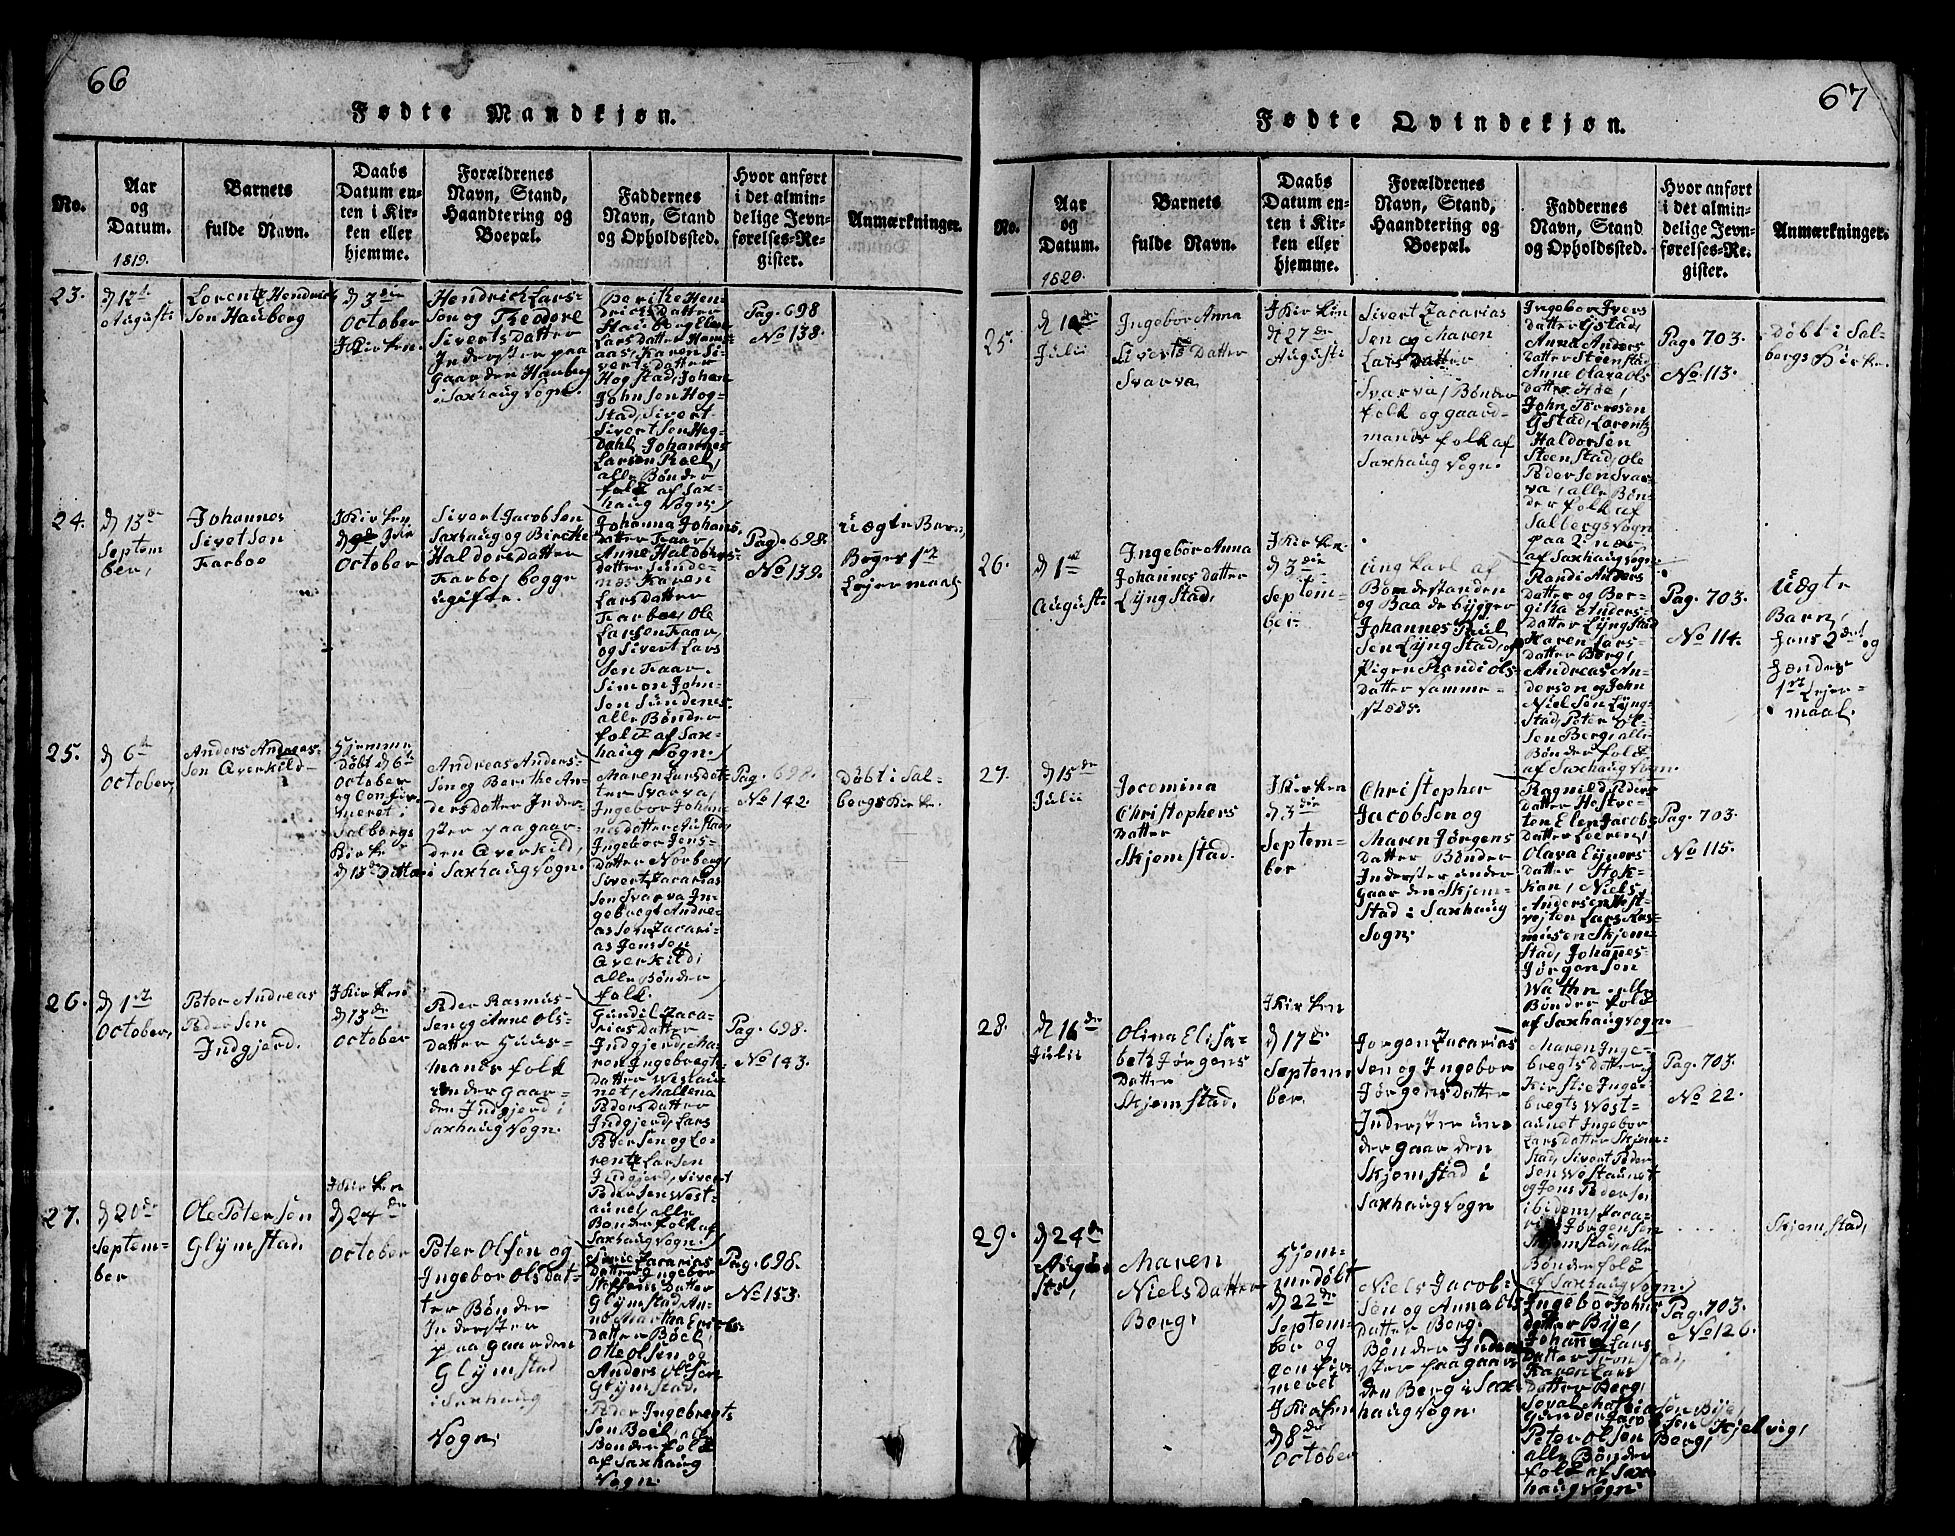 66
Fødte Mandkjøn.
No.
Aar
og
Datum.
1819.
Barnets
fulde Navn.
Daabs
Datum en-
ten i Kir-
ken eller
hjemme.
Forældrenes
Navn, Stand,
Haandtering og
Boepæl.
Faddernes
Navn, Stand
og Opholdssted.
Hvor anført
i det almin-
delige Jevn-
førelses-Re-
gister.
Anmærkninger.
23.
d 12te
Augusti
Lorentz Hendrich
Søn Hauberg
d 3die
October
I Kirken.
Hendrich Lars-
Søn og Theodore
Siverts Datter
Inderster paa
Gaarden Hauberg
Saxhaug Sogn.
Berithe Hen-
drichs Datter
Hauberg Elen
Lars Datter Ham-
aas, Karen Si-
verts Datter
Hogstad, Johan
Johnsen Hog-
stad, Sivert
Sivertsen Heg-
dahl, Johannes
Larsen Roel,
alle Bønder
folk af Sax-
haug Sogn.
Pag. 698
No 138.
24.
d 13de
Septem
ber,
Johannes
Sivertsen
Farboe
I Kirken
d 3die
October
Sivert Jacobsen
Saxhaug og Birethe
Haldors Datter
Farbo, begge
ugifte.
Johanna Johans
Datter Faar,
Anne Haldors
Datter Sunde-
nes Karen
Lars Datter
Farboe, Ole
Larsen Faar,
og Sivert Lars
Søn Faar.
Simon John-
son Sundenes
alle Bønder
folk af Sax-
haug Sogn.
Pag. 698.
No 139.
Uægte Barn,
Beges 1st
Lejermaal
25.
d 6te
October,
Anders Andreas-
Søn Overkild
Hjemme
døbt d 6te
October
og confir-
meret i
Salbergs
Kirke
d 15de Ditto
Andreas Anders-
Søn og Berithe An-
ders Datter Inder-
ster paa gaar-
den Overkild,
i Saxhaug Sogn.
Maren Lars Dat-
ter Svarva,
Ingebor Johan-
nes Datter Austad,
Ingebor Jens-
Datter Norberg,
Sivert Zacarias
Søn Svarva In-
gebregt Andre-
as Søn Zacari-
as Jenssøn
Overkild
alle Bønder
folk.
Pag. 698.
No 142.
Døbt i Sal-
bergs Kirke.
26.
d 1st
October,
Peter Andreas
Pedersen
Indgjerd.
I Kirken
d 15de
October
Peder Rasmus-
Søn og Anne Ols-
Datter Huus-
mands folk
under Gaar-
den Indgjerd i
Saxhaug Sogn.
Gundil Zaca-
rias Datter
Indgjerd, Ma-
ren Ingebregt-
Datter Westau-
net, Mallena
Peders Datter
Indgjerd, Lars
Pedersen og Lo-
rentz Larsen
Indgjerd, Sivert
Pedersen West-
aunet, alle
Bønder folk af
Saxhaug Sogn.
Pag. 698.
No 143.
27.
d 20de
Septem-
ber
Ole Petersøn
Glymstad.
I Kirken
d 24de
October
Peter Olsøn og
Ingebor Ols Dat-
ter Bønder
Inderster
paa gaarden
Glymstad
i Saxhaug
Sogn.
Zacarias
Datter Ingebor
Steffens Datter
Glymstad An-
ne Martha Erichs-
Datter Boel,
Otte Olsen og
Anders Olsen
Glymstad.
Peder Ingebregts
Søn Boel, alle
Bønder folk
af Saxhaug
Sogn.
Pag. 698.
No 153.
67
Fødte Qvindekjøn.
No.
Aar
og
Datum.
1820.
Barnets
fulde Navn.
Daabs
Datum en-
ten i Kir-
ken eller
hjemme.
Forældrenes
Navn, Stand,
Haandtering og
Boepæl.
Faddernes
Navn, Stand
og Opholdssted.
Hvor anført
i det almin-
delige Jevn-
førelses-Re-
gister.
Anmærkninger.
25.
Julii
Ingebor Anna
Siverts Datter
Svarva
I Kirken
d 27de
Augusti
Sivert Zacarias
Søn og Maren
Lars Datter
Svarva, Bønder
folk og gaard-
mands folk af
Saxhaug Sogn.
Ingebor Ivers
Datter Ystad,
Anna Anders
Datter Steenstad
Anne Olava Ols
Datter Hoe,
John Toresen
Ystad, Lorentz
Haldorsen
Steenstad, Ole
Pedersen Svar-
va, alle Bøn-
der folk af
Salbergs Sogn
paa 2 nær
af Saxhaug Sogn
Pag. 703.
No 113.
Døbt i Sal-
bergs Kirke.
26.
d 1st
Augusti
Ingebor Anna
Johannes Datter
Lyngstad,
I Kirken
d 3die
Septem-
ber.
ung Karl af
Bondestanden
og Baadebygger
Johannes Paul
Søn Lyngstad, og
Pigen Randi Ols
Datter samme-
steds.
Randi Anders
Datter og Ber-
githa Anders-
Datter Lyngstad
Karen Lars-
Datter Berg,
Andreas An-
dersøn og John
Nielsøn Lyng-
stad, Peter Ol-
sen Berg, alle
Bønder folk
af Saxhaug Sogn.
Pag. 703.
No 114.
Uægte
Barn,
hans 2det og
hendes
1st Lejer-
maal.
27.
d 15de
Julii
Jocomina
Christophers
Datter
Skjemstad.
I Kirken
d 3die
Septem-
ber
Christopher
Jacobsen og
Maren Jørgens
Datter Bønder
Inderster under
Gaarden Skjem-
stad i Saxhaug
Sogn.
Ragnild Peders
Datter Hestve-
ten Elen Jacobs
Datter Leeren,
Olava Ejners
Datter Stok-
kan, Niels
Andersen Hest-
vejten Lars Ras-
musen Skjem-
stad, Johannes
Jørgensøn
Wathn. alle
Bønder folk
af Saxhaug Sogn.
Pag. 703.
No 115.
28.
d 16de
Julii
Olina Elisa-
beth Jørgens
Datter
Skjemstad.
I Kirken
d 17de
Septem-
ber.
Jørgen Zacarias
Søn og Ingebor
Jørgens Datter
Inderster un-
der gaarden
Skjemstad i
Saxhaug Sogn
Maren Inge-
bregts Datter og
Kirstie Inge-
bregts West-
aunet Ingebor
Lars Datter Skjem-
stad, Sivert Peder
Søn Westaunet
og Jens Pedersen
ibidem, Zaca-
rias Jørgensen
Skjemstad, alle
Bønder folk
af Saxhaug Sogn.
Pag. 703.
No 22.
29.
d 24de
Augu-
sti,
Maren
Niels Datter
Berg,
Hjem-
me døbt
d 22de
Septem-
ber og
confir-
meret
I Kirken
d 8de
October
Niels Jacob-
Søn og Anna Ols
Datter Berg.
Bønder Inder-
ster paa gaar-
den Berg i Sax-
haug Sogn.
Ingebor Johns
Datter Bije,
Johanna Lars
Datter Tronstad,
Karen Lars
Datter Berg,
Peter Olsen Berg,
alle Bønder
folk af Sax-
haug Sogn.
Pag. 703.
No 126.
Skjemstad,